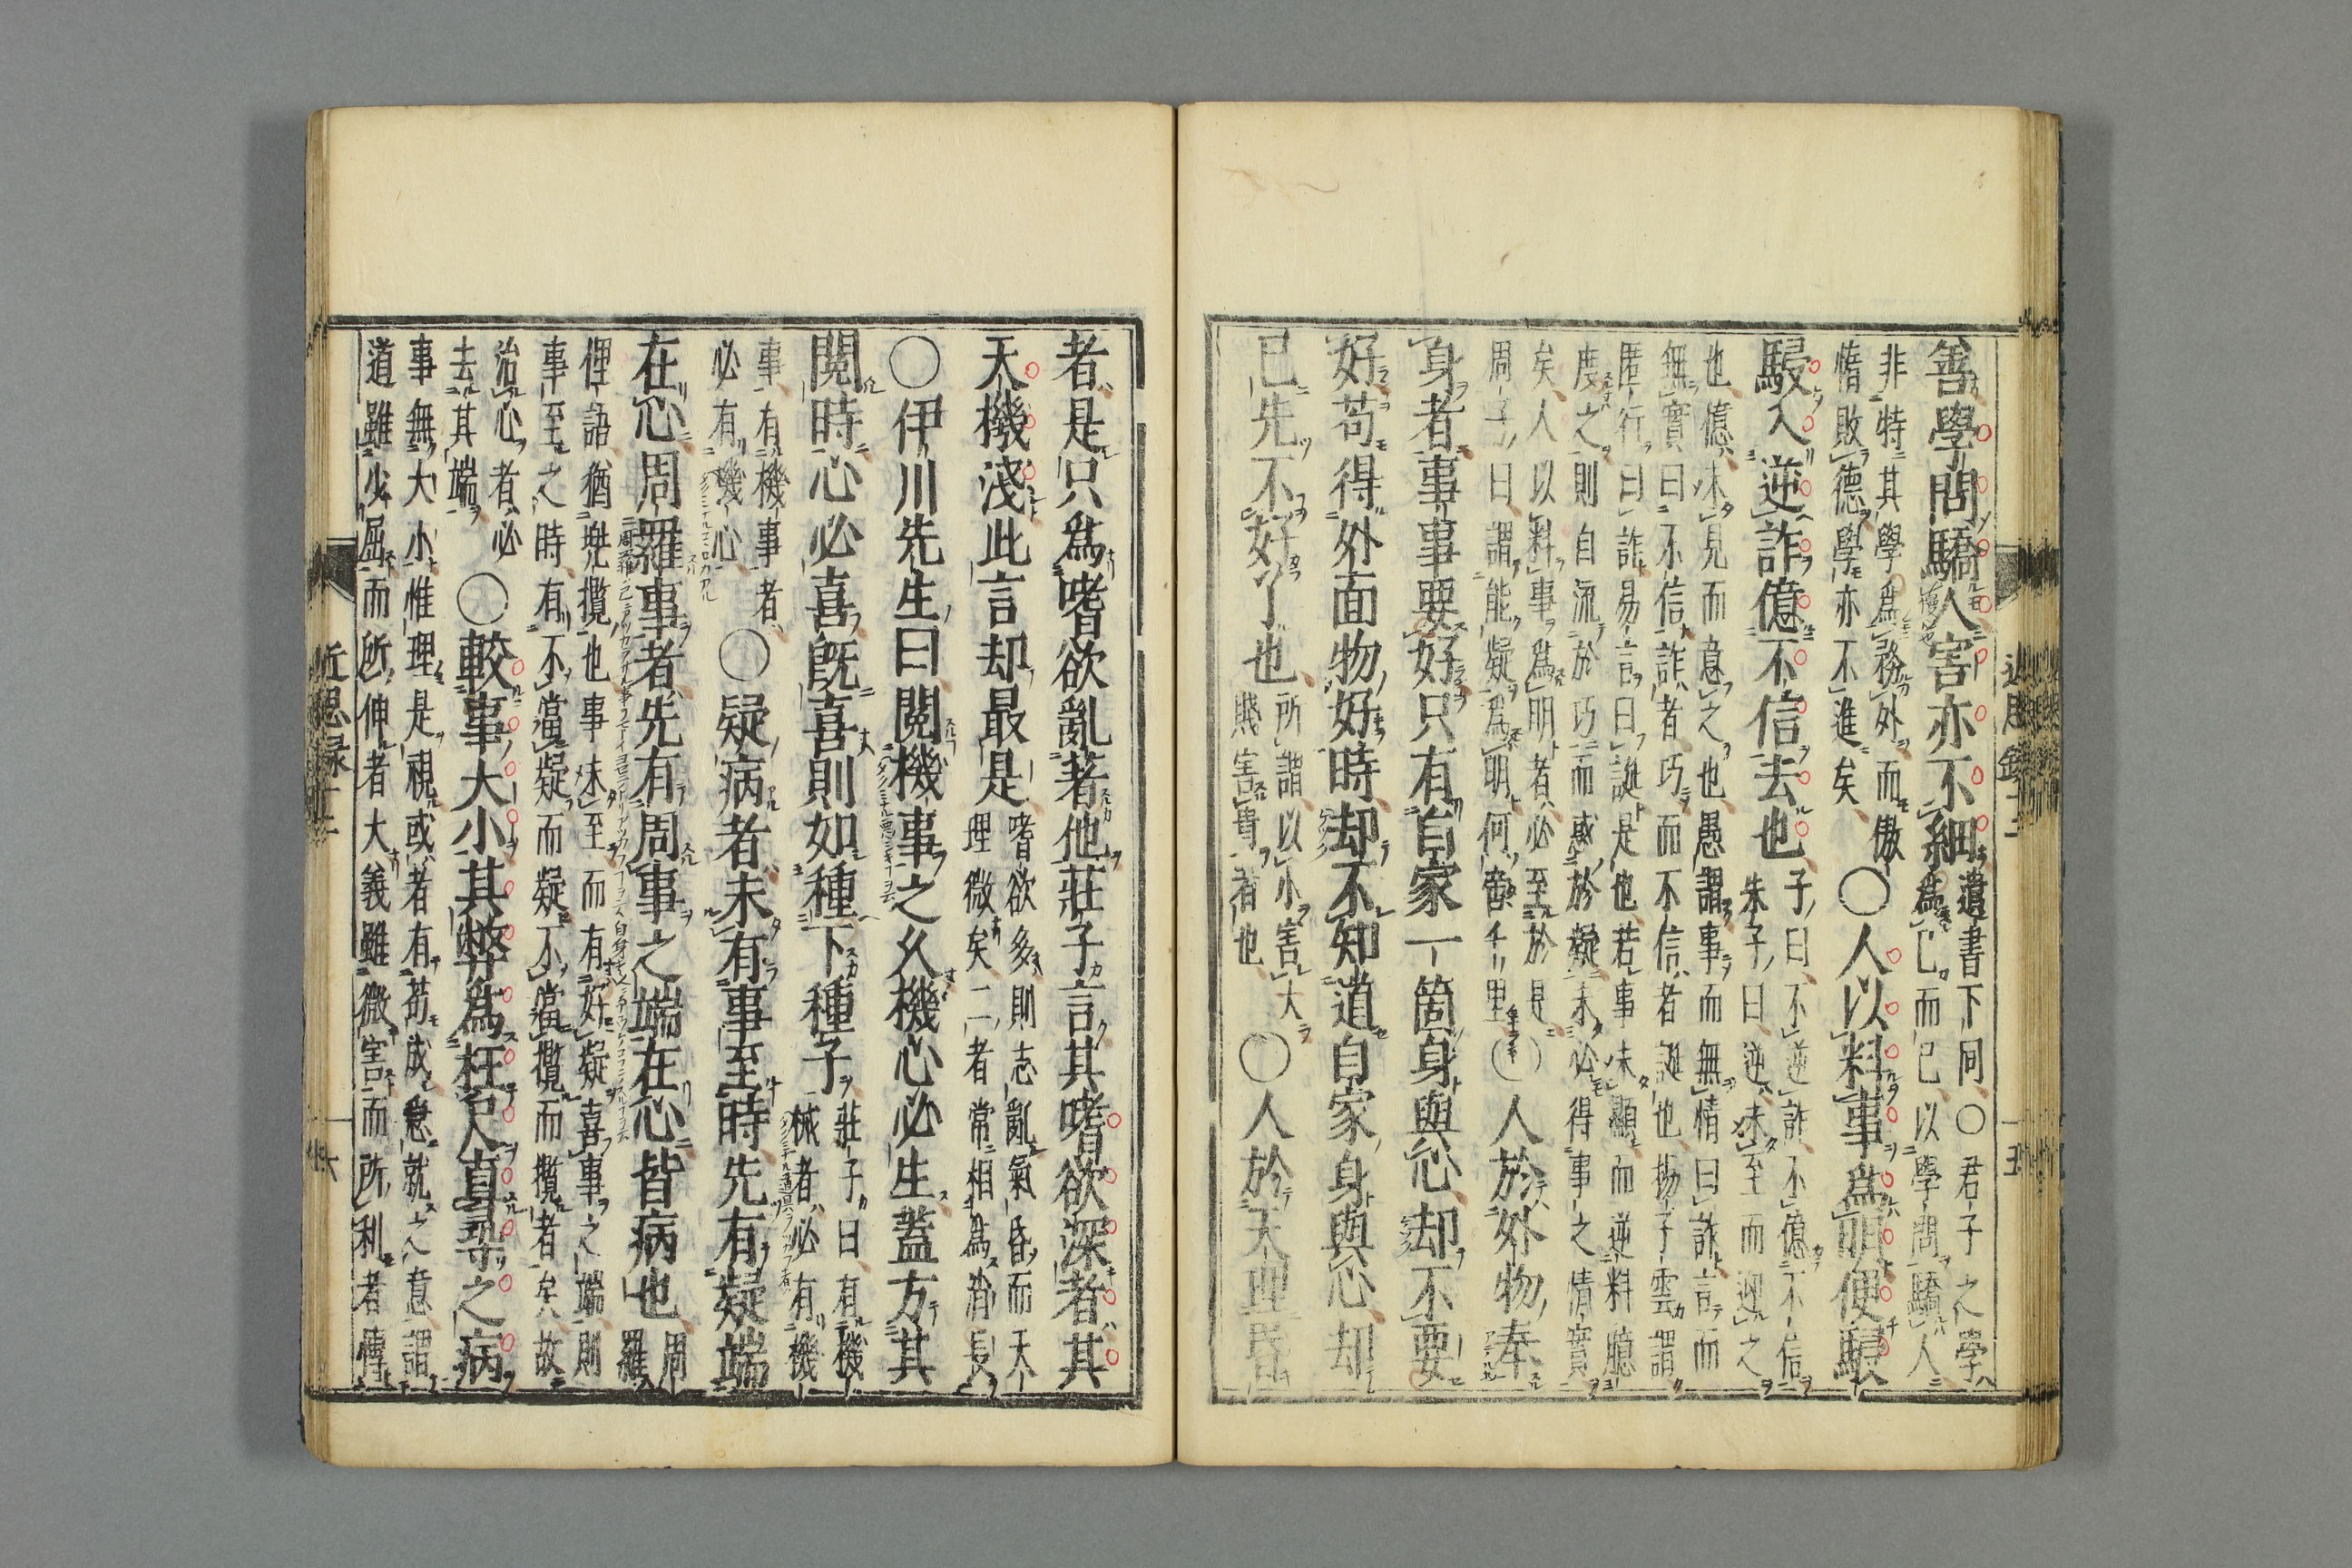 善學問驕人害亦不細遺書下同○君子之學
爲己而已以學問驕人
非特其學爲務外而傲
惰敗德學亦不進矣○人以料事爲明便駸
駸入逆詐億不信去也子曰不逆詐不億不信
朱子曰逆未至而迎之
也億未見而意之也愚謂事而無情曰詐言而
無實曰不信詐者巧而不信者誕也揚子雲謂
匿行曰詐易言曰誕是也若事未顯而逆料臆
度之則自流於巧而惑於疑未必得事之情實
矣人以料事爲明者必至於是
周子曰謂能疑爲明何啻千里○人於外物奉
身者事事要好只有自家一箇身與心却不要
好苟得外面物好時却不知道自家身與心却
已先不好了也所謂以小害大
賤害貴者也○人於天理昏
者是只爲嗜欲亂著他莊子言其嗜欲深者其
天機淺此言却最是嗜欲多則志亂氣昏而天
理微矣二者常相爲消長
○伊川先生曰閱機事之久機心必生蓋方其
閱時心必喜既喜則如種下種子莊子曰有機
械者必有機
事有機事者
必有機心○疑病者未有事至時先有疑端
在心周羅事者先有周事之端在心皆病也周
羅
俚語猶兜攬也事未至而有好疑喜事之端則
事至之時有不當疑而疑不當攬而攬者矣故
治心者必
去其端○較事大小其弊爲枉尺直尋之病
事無大小惟理是視或者有苟成急就之意謂
道雖少屈而所伸者大義雖微害而所利者博
近思録十二
六